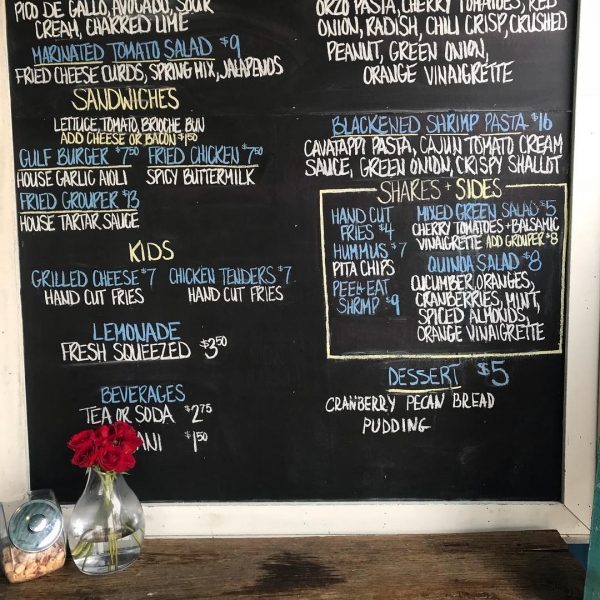 PICO DE GALLO, AVOCADO, SOUR
CREAM, CHARRED LIME
MARINATED TOMATO SALAD $9
FRIED CHEESE CURDS, SPRING MIX, JALAPENOS
SANDWICHES
LETTUCE, TOMATO, BRIOCHE BUN
ADD CHEESE OR BACON $1.50
GULF BURGER $7.50 FRIED CHICKEN $7.50
HOUSE GARLIC AIOLI SPICY BUTTERMILK
FRIED GROUPER $13
HOUSE TARTAR SAUCE
KIDS
GRILLED CHEESE $7 CHICKEN TENDERS $7
HAND CUT FRIES HAND CUT FRIES
LEMONADE
FRESH SQUEEZED $3.50
BEVERAGES
TEA OR SODA $2.75
ANI $1.50
ORZO PASTA, CHERRY TOMATOES, RED
ONION, RADISH, CHILI CRISP, CRUSHED
PEANUT, GREEN ONION,
ORANGE VINAIGRETTE
BLACKENED SHRIMP PASTA $16
CAVATAPPI PASTA, CAJUN TOMATO CREAM
SAUCE, GREEN ONION, CRISPY SHALLOT
SHARES + SIDES
HAND CUT
FRIES $4
HUMMUS $7
PITA CHIPS
PEEL & EAT
SHRIMP $9
MIXED GREEN SALAD $5
CHERRY TOMATOES + BALSAMIC
VINAIGRETTE ADD GROUPER $8
QUINOA SALAD $8
CUCUMBER, ORANGES,
CRANBERRIES, MINT,
SPICED ALMONDS,
ORANGE VINAIGRETTE
DESSERT $5
CRANBERRY PECAN BREAD
PUDDING